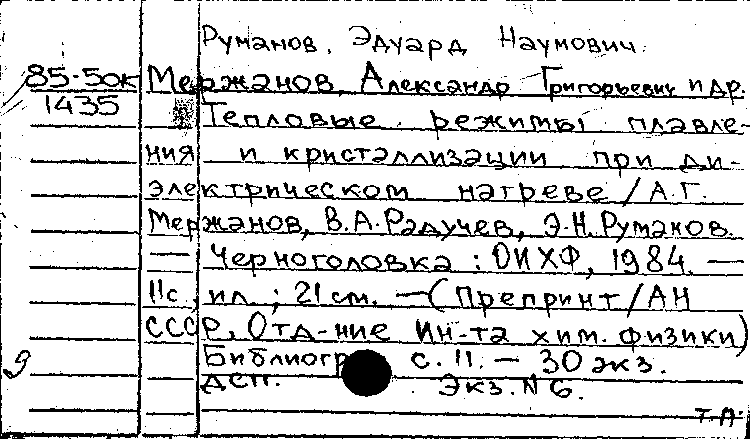 Руманов, Эдуард Наумович.
85-50к Мержанов, Александр Григорьевич и др.
1435 Тепловые режимы плавле-
ния и кристаллизации при ди-
электрическом нагреве / А.Г.
Мержанов, В.А. Радучев, Э.Н. Руманов.
— Черноголовка : ОИХФ, 1984. —
11с., ил.; 21см. — (Препринт / АН
СССР, Отд-ние Ин-та хим. физики)
9 Библиогр. с. 11. — 30 экз.
ДСП. Экз. N 6.
Т.А.